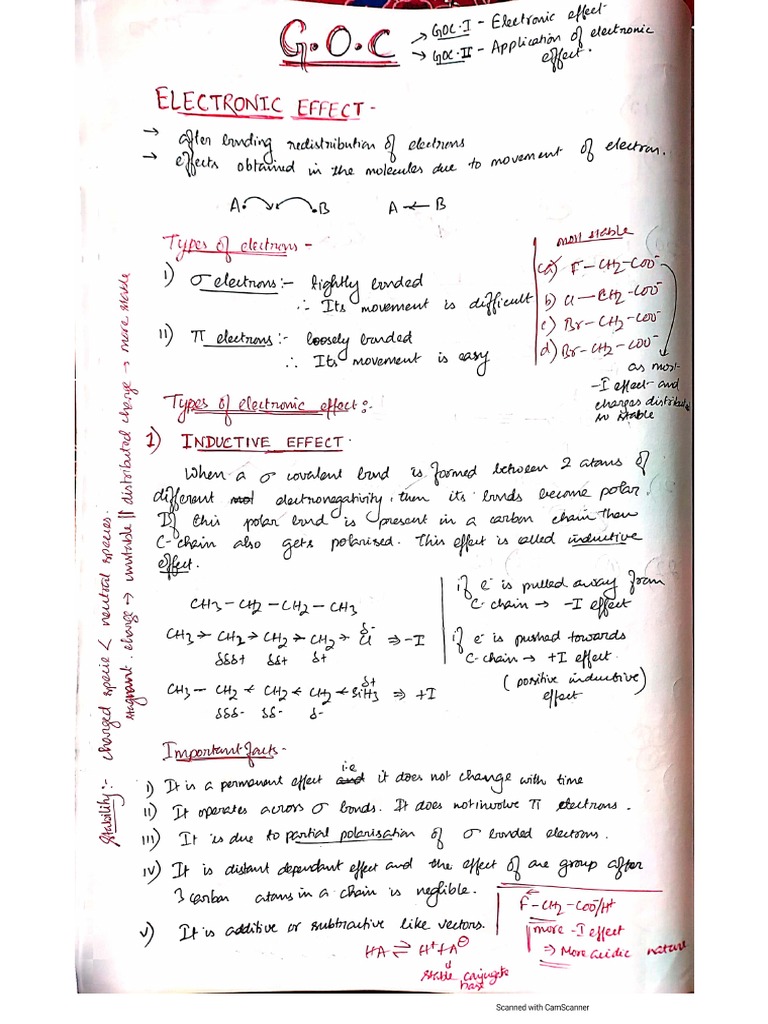 G.O.C
→ GOC-I - Electronic effect
→ GOC-II - Application of electronic effect.
ELECTRONIC EFFECT -
→ after bonding redistribution of electrons
→ effects obtained in the molecules due to movement of electron.
A . . B A ← B
Types of electrons -
i) σ electrons :- tightly bonded
∴ Its movement is difficult
ii) π electrons :- loosely bonded
∴ Its movement is easy
most stable
(a) F - CH2 - COO⁻
b) Cl - CH2 - COO⁻
c) Br - CH2 - COO⁻
d) Br - CH2 - COO⁻
as most
-I effect and
charges distributed
so stable
Types of electronic effect :-
1) INDUCTIVE EFFECT -
When a σ covalent bond is formed between 2 atoms of
different electronegativity, then its bonds become polar.
If this polar bond is present in a carbon chain then
C-chain also gets polarised. This effect is called inductive
effect.
CH3 - CH2 - CH2 - CH3
CH3 → CH2 → CH2 → CH2 → Cl δ- ⇒ -I
δδδ+ δδ+ δ+
CH3 - CH2 ← CH2 ← CH2 ← SiH3 δ+ ⇒ +I
δδδ- δδ- δ-
if e⁻ is pulled away from
C-chain → -I effect
if e⁻ is pushed towards
C-chain → +I effect.
(positive inductive)
effect
Important facts -
i) It is a permanent effect i.e it does not change with time
ii) It operates across σ bonds. It does not involve π electrons.
iii) It is due to partial polarisation of σ bonded electrons.
iv) It is distant dependant effect and the effect of one group after
3 carbon atoms in a chain is neglible.
v) It is additive or subtractive like vectors.
HA ⇌ H⁺ + A⊖
stable conjugate
base
F - CH2 - COO⁻/H⁺
more -I effect
⇒ More acidic nature
Stability :- charged specie < neutral species.
stagnant charge → unstable || distributed charge → more stable
Scanned with CamScanner